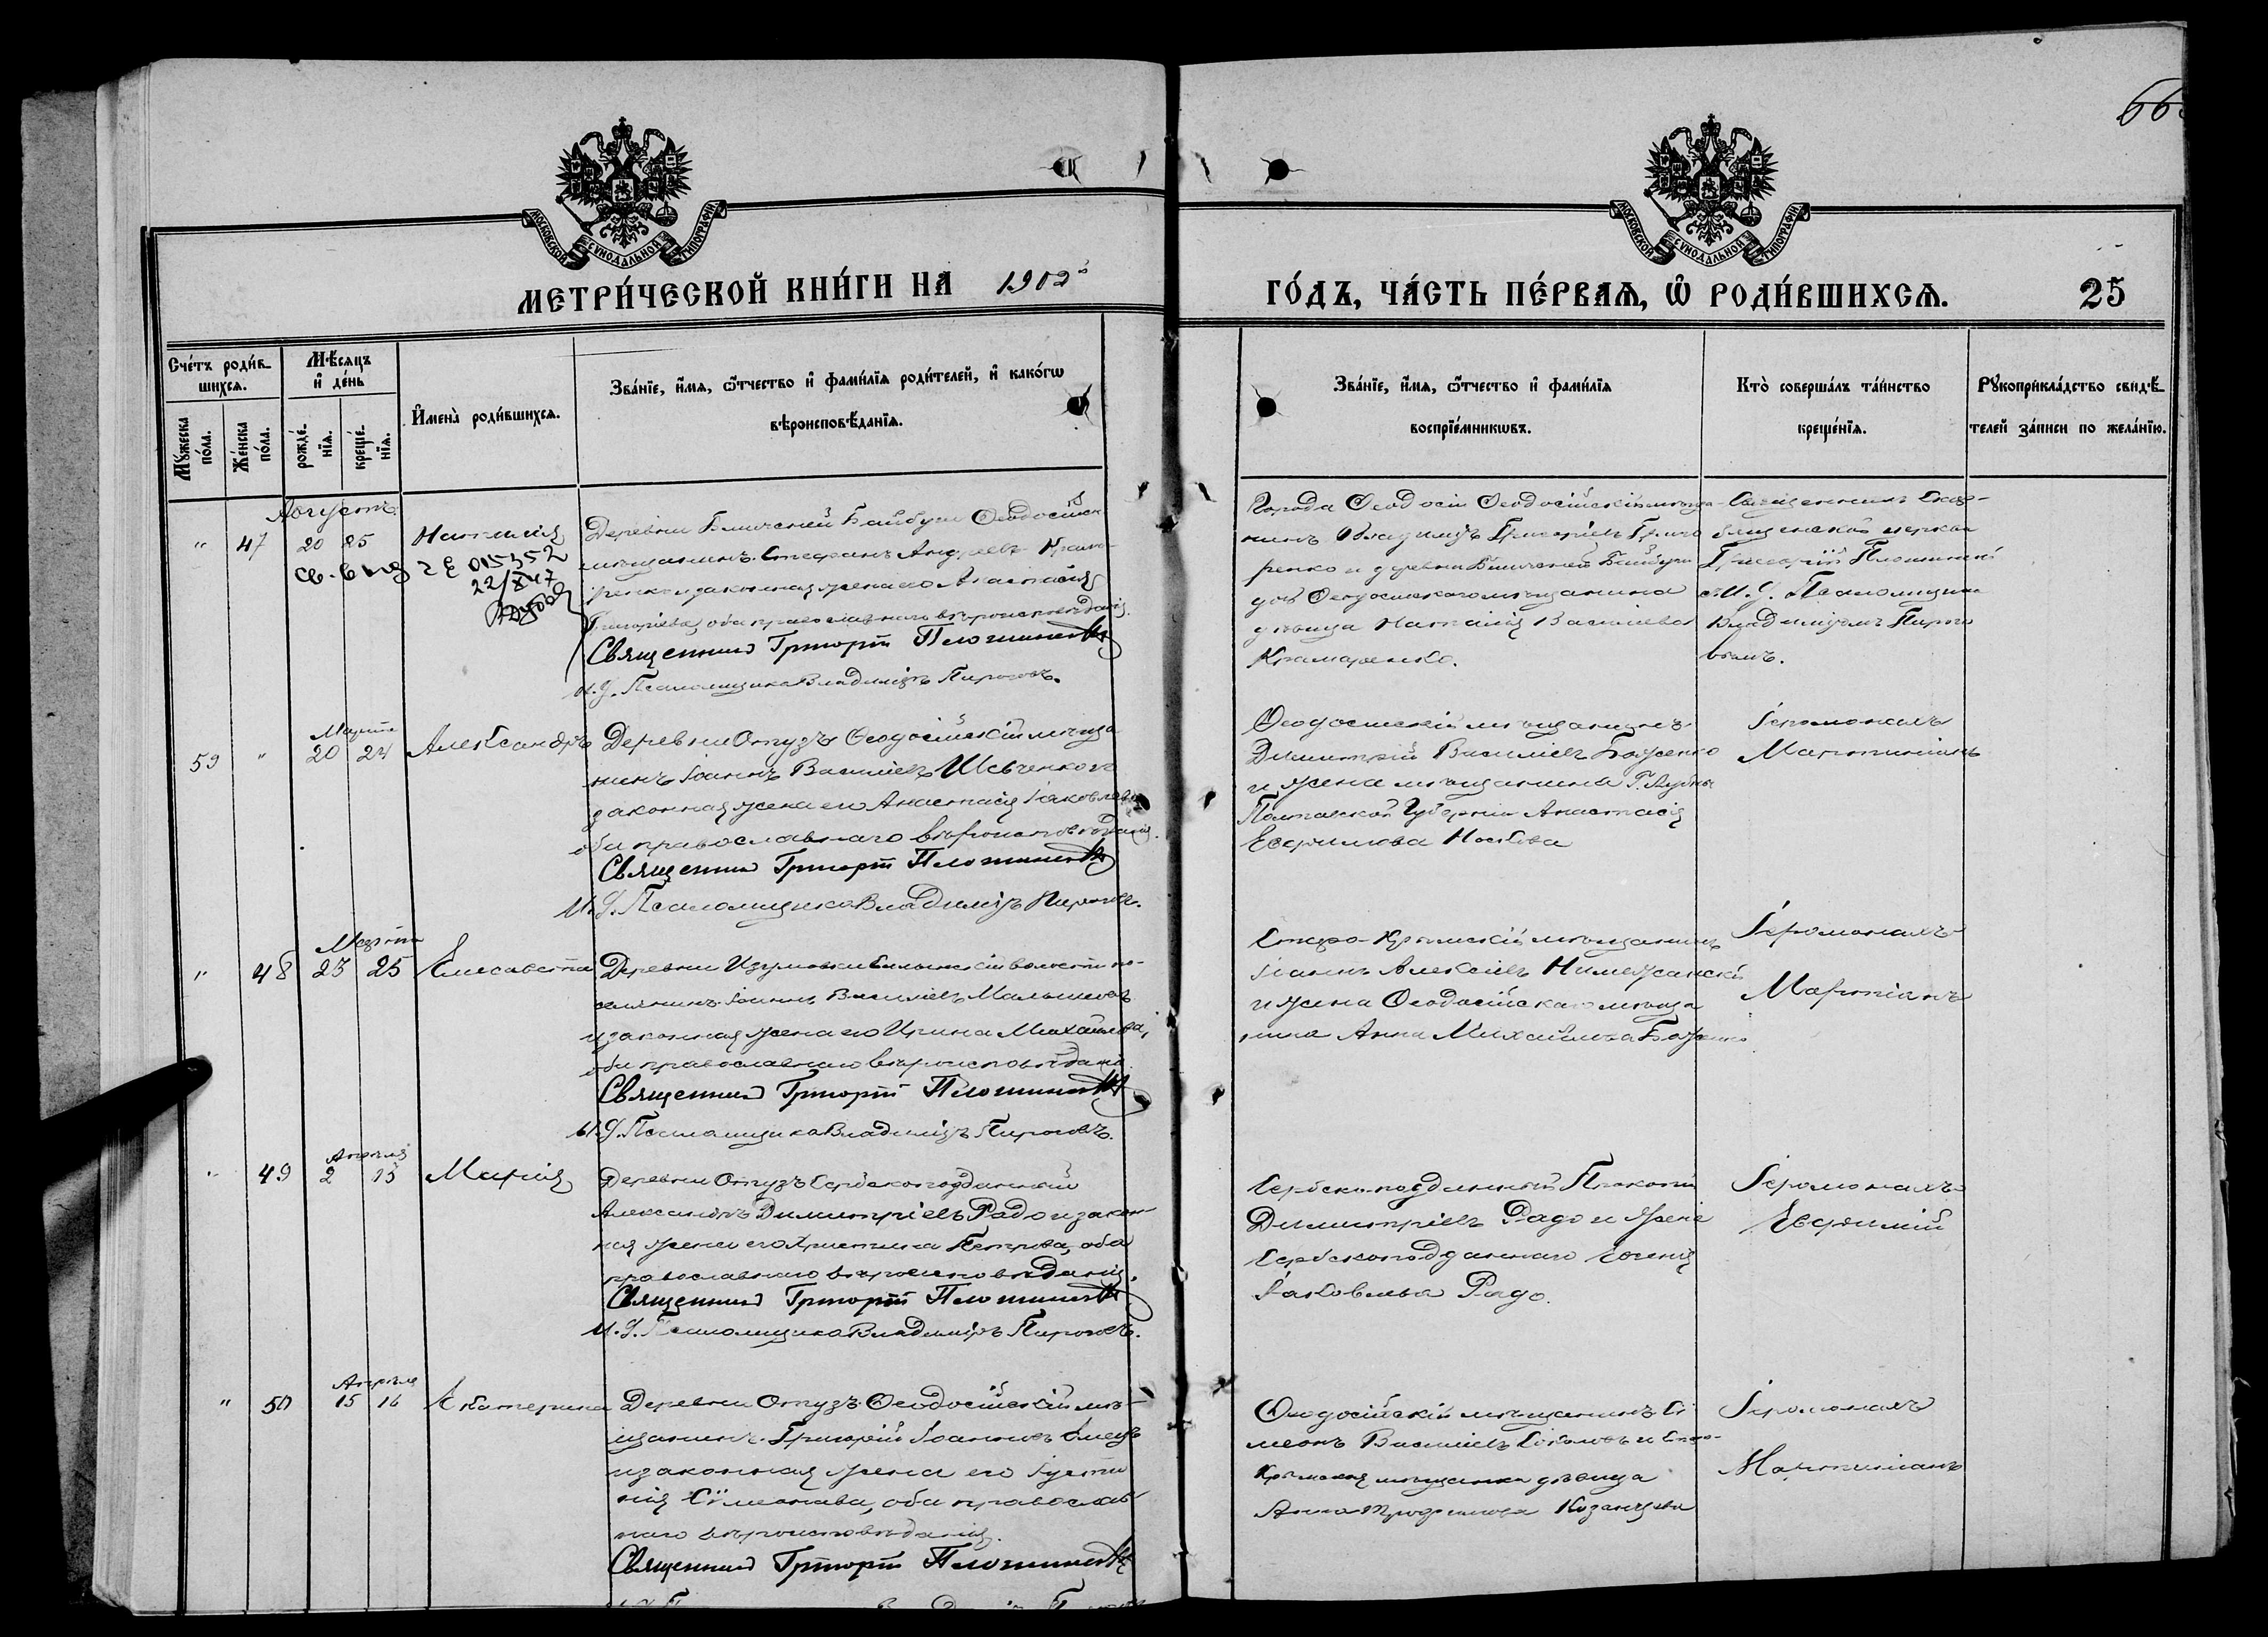 66
МОСКОВСКОЙ СѴНОДАЛЬНОЙ ТИПОГРАФІИ
МОСКОВСКОЙ СѴНОДАЛЬНОЙ ТИПОГРАФІИ
МЕТРИ́ЧЕСКОЙ КНИ́ГИ НА 1902
ГО́ДЪ, ЧА́СТЬ ПЕ́РВАѦ, Ѽ РОДИ́ВШИХСѦ.
25
Сче́тъ роди́в-
шихсѧ.
Мѣ́сѧцъ
и҆ де́нь
Мꙋ́жеска
по́ла.
Же́нска
по́ла.
рожде́-
нїѧ.
креще́-
нїѧ.
И҆мена̀ роди́вшихсѧ.
Зва́нїе, и҆́мѧ, ѻ҆́тчество и҆ фами́лїѧ роди́телей, и҆ како́гѡ
вѣроисповѣ́данїѧ.
Зва́нїе, и҆́мѧ, ѻ҆́тчество и҆ фами́лїѧ
воспрїе́мникѡвъ.
Кто̀ соверша́лъ та́инство
креще́нїѧ.
Рꙋкоприкла́дство свидѣ́-
телей за́писи по жела́нїю.
Августъ
" 47 20 25 Наталія
Св. 015352
22/
Деревни Ближней Байбуги Ѳеодосійск
мѣщанинъ Стефанъ Андреевъ Крама-
ренко и законная жена его Анастасія
Григоріева, оба православнаго вѣроисповѣданія.
Священникъ Григорій Плошинскій
И. Д. Псаломщика Владиміръ Пироговъ.
Города Ѳеодосіи Ѳеодосійскій мѣща-
нинъ Владиміръ Григоріевъ
ренко и деревни Ближней Байбуги
Ѳеодосійскаго мѣщанина
дѣвица Наталія Васильева
Крамаренко.
Священникъ
церкви
Григорій Плошинскій
съ И. Д. Псаломщика
Владиміромъ Пирого
вымъ.
Марта
59 " 20 24 Александръ
Деревни Отузъ Ѳеодосійскій мѣща
нинъ Іоаннъ Васильевъ Шевченко и
законная жена его Анастасія Іаковлева
оба православнаго вѣроисповѣданія.
Священникъ Григорій Плошинскій
И. Д. Псаломщика Владиміръ Пироговъ.
Ѳеодосійскій мѣщанинъ
Димитрій Васильевъ Баженко
и жена мѣщанина Г. Лубны
Полтавской Губерніи Анастасія
Евфимова Носкова
Іеромонахъ
Мартиніанъ
Марта
" 48 23 25 Елисавета
Деревни Изюмовки волости по-
селянинъ Іоаннъ Васильевъ Малышевъ
и законная жена его Ирина Михайлова,
оба православнаго вѣроисповѣданія
Священникъ Григорій Плошинскій
И. Д. Псаломщика Владиміръ Пироговъ.
Старо-Крымскій мѣщанинъ
Іоаннъ Алексіевъ
и жена Ѳеодосійскаго мѣща
нина Анна Михайлова Баженко
Іеромонахъ
Мартініанъ
Апрѣля
" 49 2 15 Марія
Деревни Отузъ Сербскоподданный
Александръ Димитріевъ Радо и закон-
ная жена его Христина Петрова, оба
православнаго вѣроисповѣданія.
Священникъ Григорій Плошинскій
И. Д. Псаломщика Владиміръ Пироговъ.
Сербско-подданный Прокопій
Димитріевъ Радо и жена
Сербскоподданнаго
Іаковлева Радо.
Іеромонахъ
Евфимій
Апрѣля
" 50 15 16 Екатерина
Деревни Отузъ Ѳеодосійскій мѣ-
щанинъ Григорій Іоанновъ
и законная жена его Іусти
нія Сімеонова, оба православ-
наго вѣроисповѣданія.
Священникъ Григорій Плошинскій
Ѳеодосійскій мѣщанинъ Си
меонъ Васильевъ Соколовъ и Старо-
Крымская мѣщанка дѣвица
Анна Трофимова Казанцева
Іеромонахъ
Мартиніанъ